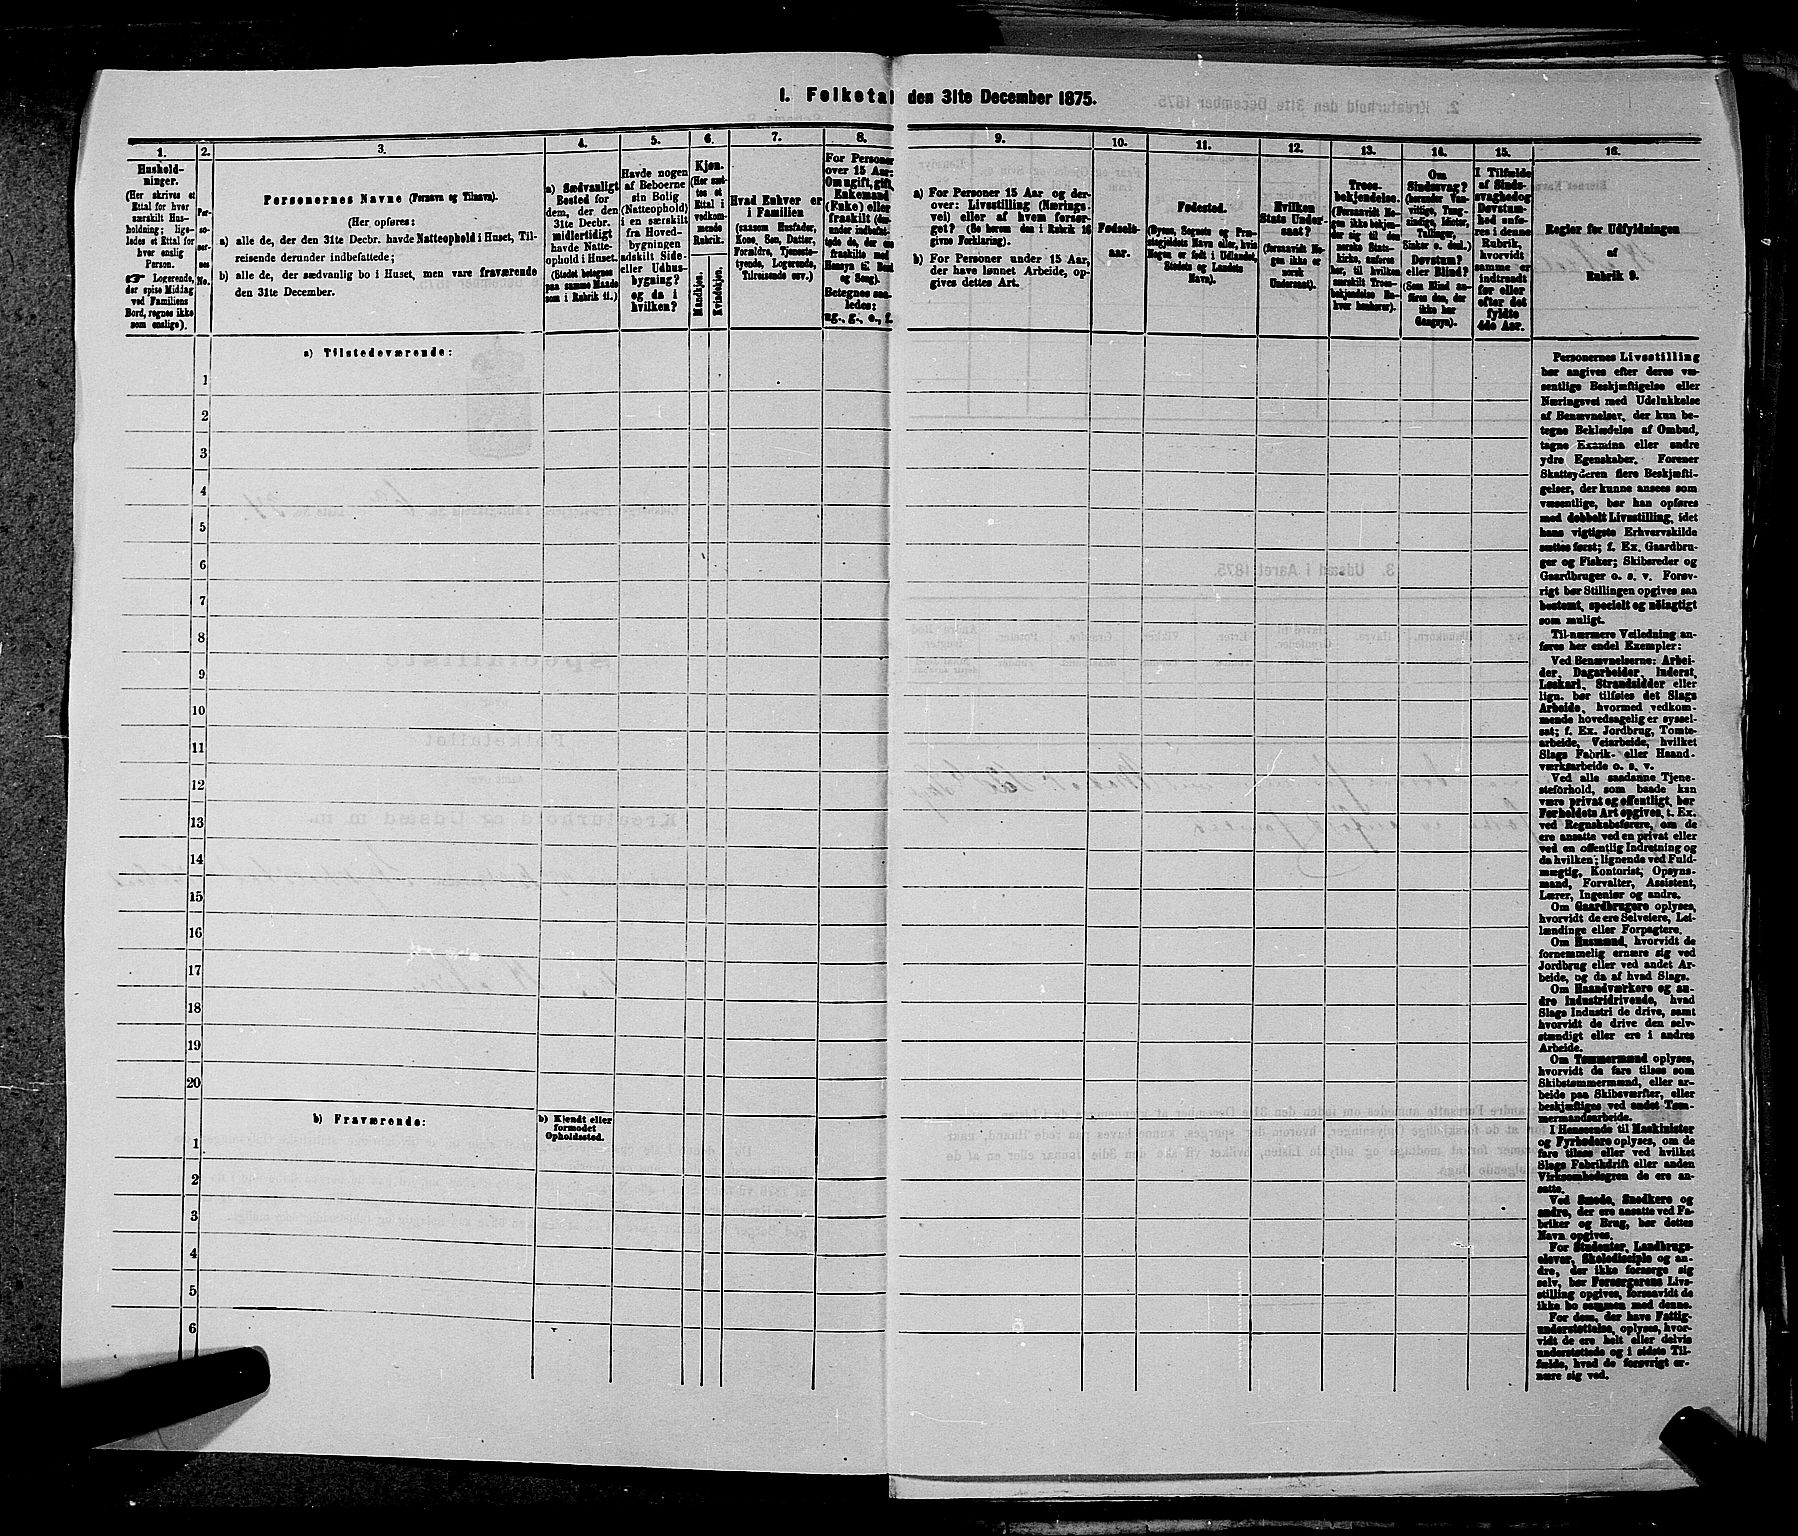 1. Folketal den 31te December 1875.
1.
Hushold-
ninger.
(Her skrives et
Ettal for hver
særskilt Hus-
holdning; lige-
ledes et Ettal for
hver enslig
Person.
Logerende,
der spise Middag
ved Familiens
Bord, regnes ikke
som enslige).
2.
Per-
so-
ner-
nes
No.
3.
Personernes Navne (Fornavn og Tilnavn).
(Her opføres:
a) alle de, der den 31te Decbr. havde Natteophold i Huset, Til-
reisende derunder indbefattede;
b) alle de, der sædvanlig bo i Huset, men vare fraværende
den 31te December.
4.
a) Sædvanligt
Bosted for
dem, der den
31te Decbr.
midlertidigt
havde Natte-
ophold i Huset.
(Stedet betegnes
paa samme Maade
som i Rubrik 11.)
5.
Havde nogen
af Beboerne
sin Bolig
(Natteophold)
i en særskilt
fra Hoved-
bygningen
adskilt Side-
eller Udhus-
bygning?
og da i
hvilken?
6.
Kjøn.
(Her sæt-
tes et
Ettal i
vedkom-
mende
Rubrik.
Mandkjøn.
Kvindekjøn.
7.
Hvad Enhver er
i Familien
(saasom Husfader,
Kone, Søn, Datter,
Forældre, Tjeneste-
tyende, Logerende,
Tilreisende osv.)
8.
For Personer
over 15 Aar:
Om ugift, gift,
Enkemand
(Enke) eller
fraskilt
Betegnes saa-
ledes:
ug., g., e., f.
9.
a) For Personer 15 Aar og der-
over: Livsstilling (Nærings-
vei) eller af hvem forsør-
get? (Se herom den i Rubrik 16
givne Forklaring).
b) For Personer under 15 Aar,
der have lønnet Arbeide, op-
gives dettes Art.
10.
Fødsels-
aar.
11.
Fødested.
(Byens, Sognets og Præ-
stegjeldets Navn eller, hvis
Nogen er født i Udlandet,
Stedets og Landets
Navn).
12.
Hvilken
Stats Under-
saat?
(forsaavidt No-
gen ikke er
norsk
Undersaat).
13.
Troes-
bekjendelse.
(Forsaavidt No-
gen ikke bekjen-
der sig til den
norske Stats-
kirke, anføres
her, til hvilken
særskilt Troes-
bekjendelse En-
hver henhører).
14.
Om
Sindssvag?
(herunder Van-
vittige, Tung-
sindige, Idioter,
Tullinger,
Sinker o. desl.)
Døvstum?
eller Blind?
(Som Blind an-
føres den, der
ikke har
Gangsyn).
15.
I Tilfælde
af Sinds-
svaghed og
Døvstum-
hed anfø-
res i denne
Rubrik,
hvorvidt
samme er
indtraadt
før eller
efter det
fyldte
4de Aar.
16.
Regler for Udfyldningen
af
Rubrik 9.
a) Tilstedeværende:
1
2
3
4
5
6
7
8
9
10
11
12
13
14
15
16
17
18
19
20
b) Fraværende:
b) Kjendt eller
formodet
Opholdssted.
1
2
3
4
5
6
Personernes Livsstilling
bør angives efter deres væ-
sentlige Beskjæftigelse eller
Næringsvei med Udelukkelse
af Benævnelser, der kun be-
tegne Beklædelse af Ombud,
tagne Examina eller andre
ydre Egenskaber. Forener
Skatteyderen flere Beskjæfti-
gelser, der kunne ansees som
væsentlige, bør han opføres
med dobbelt Livsstilling, idet
hans vigtigste Erhvervskilde
sættes først; f. Ex. Gaardbru-
ger og Fisker; Skibsreder og
Gaardbruger o. s. v. Forøv-
rigt bør Stillingen opgives saa
bestemt, specielt og nøiagtigt
som muligt.
Til nærmere Veiledning an-
føres her endel Exempler:
Ved Benævnelserne: Arbei-
der, Dagarbeider, Inderst,
Løskarl, Strandsidder eller
lign. bør tilføies det Slags
Arbeide, hvormed vedkom-
mende hovedsagelig er syssel-
sat; f. Ex. Jordbrug, Tomte-
arbeide, Veiarbeide, hvilket
Slags Fabrik- eller Haand-
værksarbeide o. s. v.
Ved alle saadanne Tjene-
steforhold, som baade kan
være privat og offentligt, bør
Forholdets Art opgives, t. Ex.
ved Regnskabsførere, om de
ere ansatte ved en privat eller
ved en offentlig Indretning og
da hvilken; lignende ved Fuld-
mægtig, Kontorist, Opsyns-
mand, Forvalter, Assistent,
Lærer, Ingeniør og andre.
Om Gaardbrugere oplyses,
hvorvidt de ere Selveiere, Lei-
lændinge eller Forpagtere.
Om Husmænd, hvorvidt de
fornemmelig ernære sig ved
Jordbrug eller ved andet Ar-
beide, og da af hvad Slags.
Om Haandværkere og an-
dre Industridrivende, hvad
Slags Industri de drive, samt
hvorvidt de drive den selv-
stændigt eller ere i andres
Arbeide.
Om Tømmermænd oplyses,
hvorvidt de fare tilsøs som
Skibstømmermænd, eller ar-
beide paa Skibsværfter, eller
beskjæftiges ved andet Tøm-
mermandsarbeide.
I Henseende til Maskinister
og Fyrbødere oplyses, om de
fare tilsøs eller ved hvilket
Slags Fabrikdrift eller anden
Virksomhedsgren de ere an-
satte.
Ved Smede, Snedkere og
andre, der ere ansatte ved Fa-
briker og Brug, bør dettes
Navn opgives.
For Studenter, Landbrugs-
elever, Skoledisciple og an-
dre, der ikke forsørge sig
selv, bør Forsørgerens Livs-
stilling opgives, forsaavidt de
ikke bo sammen med denne.
For dem, der have Fattig-
understøttelse, oplyses, hvor-
vidt de ere helt eller delvis
understøttede og i sidste Til-
fælde, hvad de forøvrigt er-
nære sig ved.